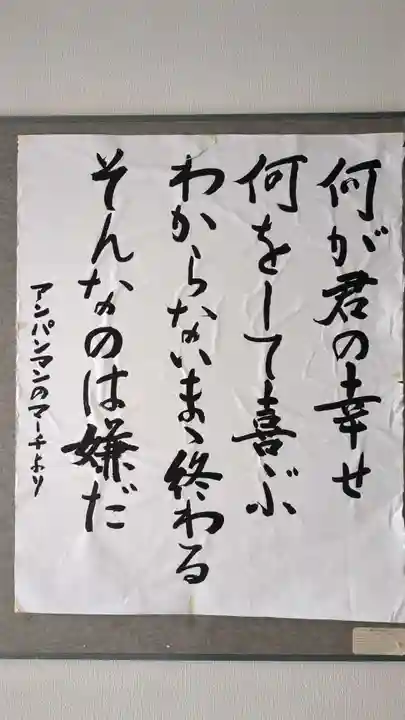 何が君の幸せ
何をして喜ぶ
わからないまゝ終わる
そんなのは嫌だ
アンパンマンのマーチより